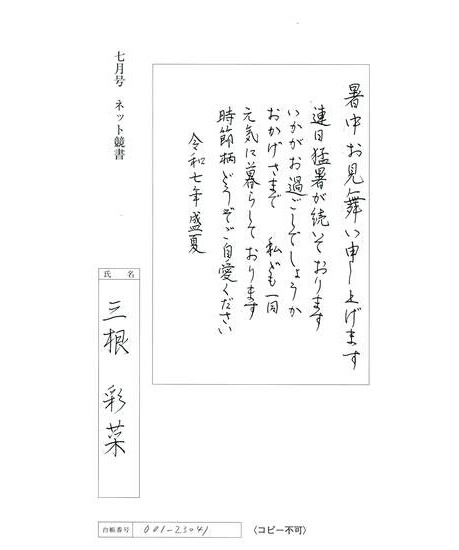 暑中お見舞い申し上げます
連日猛暑が続いております
いかがお過ごしでしょうか
おかげさまで　私ども一同
元気に暮らしております
時節柄どうぞご自愛ください
令和七年盛夏
七月号　ネット競書
氏名
三根　彩菜
台帳番号　001-23041
〈コピー不可〉